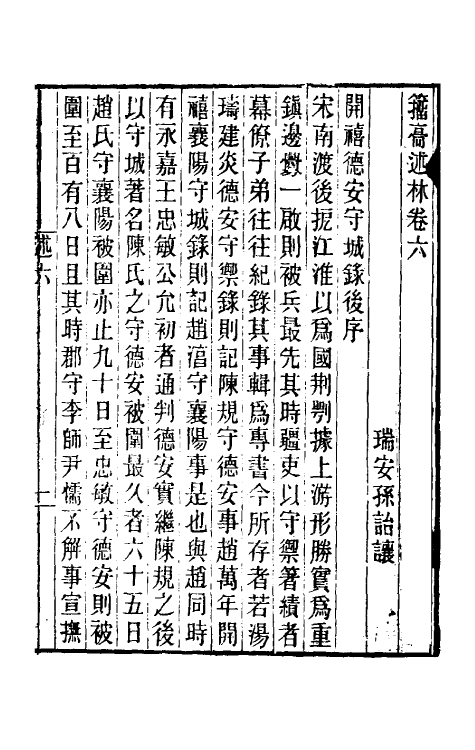 籀𢈪述林卷六
瑞安孫詒讓
開禧德安守城錄後序
宋南渡後扼江淮以爲國荆鄂據上游形勝實爲重
鎮邊釁一啟則被兵最先其時疆吏以守禦箸績者
幕僚子弟往往紀錄其事輯爲專書今所存者若湯
璹建炎德安守禦錄則記陳規守德安事趙萬年開
禧襄陽守城錄則記趙淳守襄陽事是也與趙同時
有永嘉王忠敏公允初者通判德安實繼陳規之後
以守城著名陳氏之守德安被圍最久者六十五日
趙氏守襄陽被圍亦止九十日至忠敏守德安則被
圍至百有八日且其時郡守李師尹懦不解事宣撫
述六
一